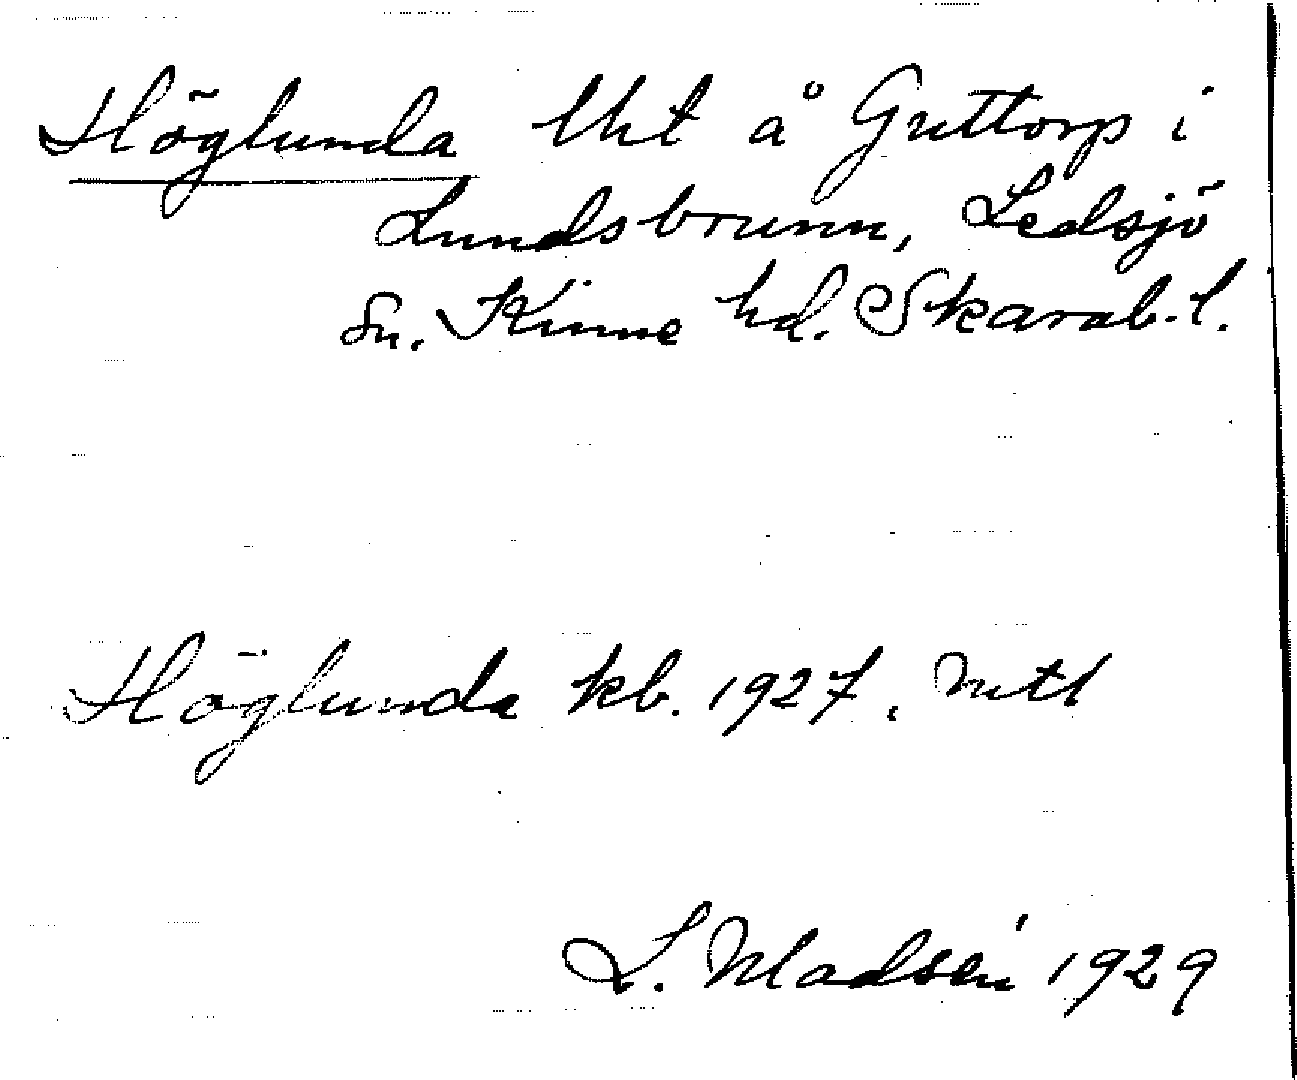 Höglunda lht å Guttorp i
Lundsbrunn, Ledsjö
sn. Kinne hd. Skarab. l.
Höglunda kb. 1927. mtl
L. Madsén 1929